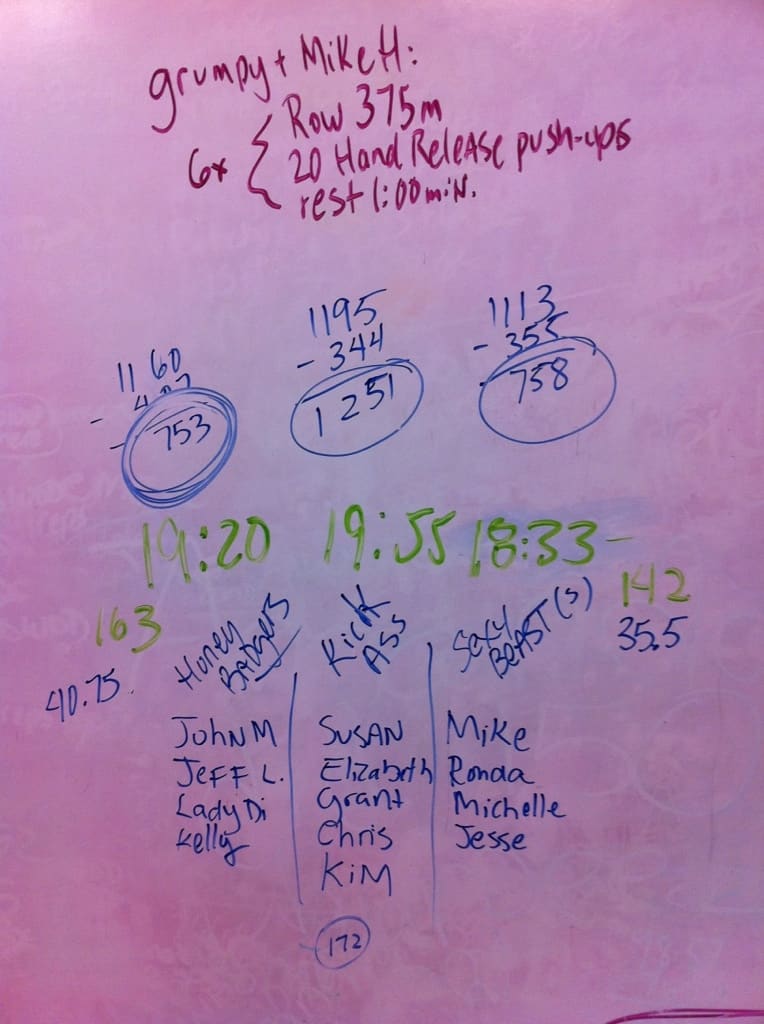 grumpy + Mike H:
6x { Row 375m
20 Hand Release push-ups
rest 1:00 min.
1160
-
753
1195
- 344
1251
1113
- 355
758
19:20 19:55 18:33 -
163
40.75
142
35.5
Honey Badgers
Kick Ass
Sexy Beast(s)
John M Susan Mike
Jeff L. Elizabeth Ronda
Lady Di Grant Michelle
Kelly Chris Jesse
Kim
172